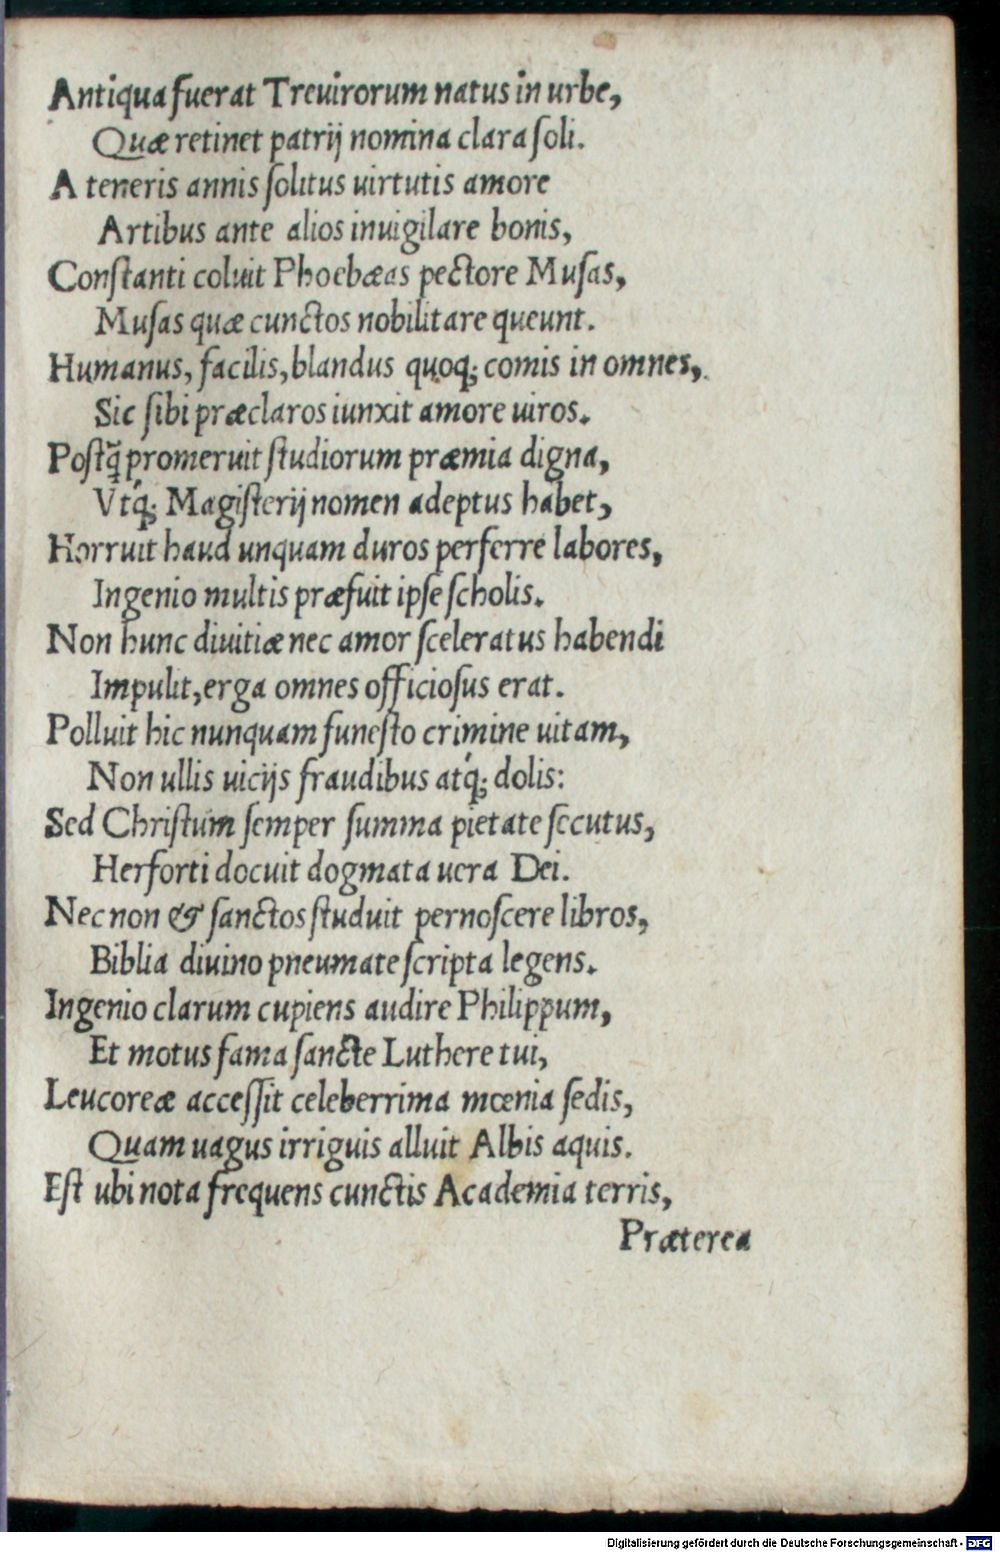 Antiqua fuerat Treuirorum natus in urbe,
Quæ retinet patrij nomina clara ſoli.
A teneris annis ſolitus uirtutis amore
Artibus ante alios inuigilare bonis,
Conſtanti coluit Phoebæas pectore Muſas,
Muſas quæ cunctos nobilitare queunt.
Humanus, facilis, blandus quoq; comis in omnes,
Sic ſibi præclaros iunxit amore uiros.
Poſtq̃ promeruit ſtudiorum præmia digna,
Vtq́; Magiſterij nomen adeptus habet,
Horruit haud unquam duros perferre labores,
Ingenio multis præfuit ipſe ſcholis.
Non hunc diuitiæ nec amor ſceleratus habendi
Impulit, erga omnes officioſus erat.
Polluit hic nunquam funeſto crimine uitam,
Non ullis uicijs fraudibus atq́; dolis:
Sed Chriſtum ſemper ſumma pietate ſecutus,
Herforti docuit dogmata uera Dei.
Nec non & ſanctos ſtuduit pernoſcere libros,
Biblia diuino pneumate ſcripta legens.
Ingenio clarum cupiens audire Philippum,
Et motus fama ſancte Luthere tui,
Leucoreæ acceſſit celeberrima mœnia ſedis,
Quam uagus irriguis alluit Albis aquis.
Eſt ubi nota frequens cunctis Academia terris,
Præterea
Digitalisierung gefördert durch die Deutsche Forschungsgemeinschaft - DFG